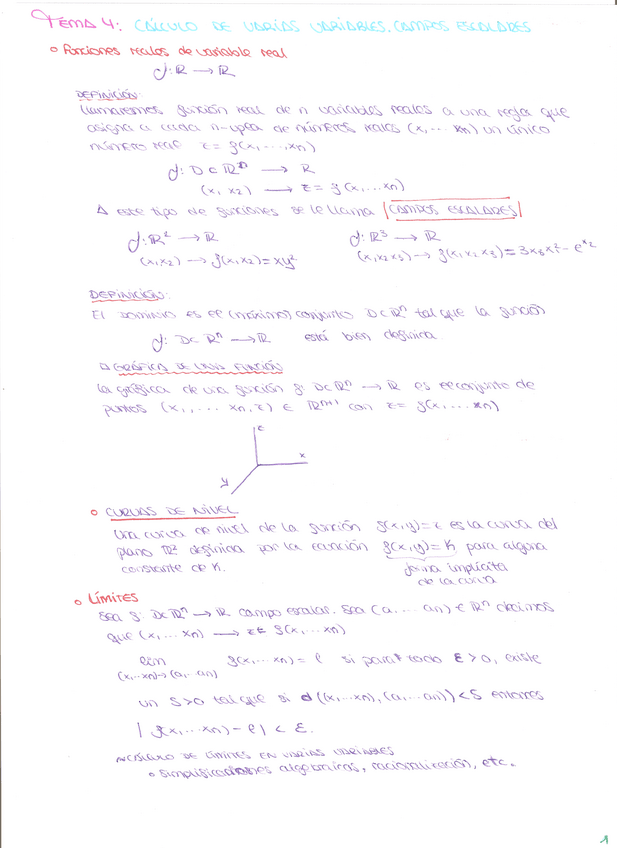 TEMA 4: CÁLCULO DE VARIAS VARIABLES. CAMPOS ESCALARES
o Funciones reales de variable real
f: ℝ → ℝ
DEFINICIÓN:
Llamaremos función real de n variables reales a una regla que
asigna a cada n-upea de números reales (x, ... xn) un único
número real z = f(x, ..., xn)
f: D ⊂ ℝⁿ → ℝ
(x, x2) → z = f(x, ... xn)
Δ este tipo de funciones se le llama |CAMPOS ESCALARES|
f: ℝ² → ℝ f: ℝ³ → ℝ
(x1x2) → f(x1x2) = xy² (x1x2x3) → f(x1 x2 x3) = 3x3x1² - e^x2
DEFINICIÓN:
El dominio es el (máximo) conjunto D ⊂ ℝⁿ tal que la función
f: D ⊂ ℝⁿ → ℝ está bien definida.
Δ GRÁFICA DE UNA FUNCIÓN
La gráfica de una función f: D ⊂ ℝⁿ → ℝ es el conjunto de
puntos (x1, ... xn, z) ∈ ℝⁿ⁺¹ con z = f(x, ... xn)
z
x
y
o CURVAS DE NIVEL
Una curva de nivel de la función f(x,y) = z es la curva del
plano ℝ² definida por la ecuación f(x,y) = K para alguna
constante de K. forma implícita
de la curva
o LÍMITES
Sea f: D ⊂ ℝⁿ → ℝ campo escalar. Sea (a, ... an) ∈ ℝⁿ decimos
que (x, ... xn) → z = f(x, ... xn)
lim f(x, ... xn) = l si para todo ε > 0, existe
(x, ... xn) → (a, .. an)
un S > 0 tal que si d((x, ... xn), (a, ... an)) < S entonces
| f(x, ... xn) - l | < ε.
CÁLCULO DE LÍMITES EN VARIAS VARIABLES
o simplificaciones algebraicas, racionalización, etc.
1